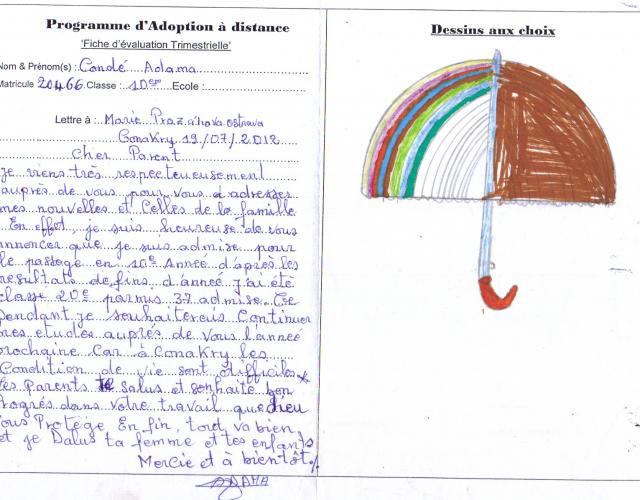 Programme d'Adoption à distance
'Fiche d'évaluation Trimestrielle'
Nom & Prénom(s) : Condé Adama
Matricule 20466 Classe : 10em Ecole :
Lettre à : Marie Prazakova ostrava
Conakry 19/07/2012
Cher Parent
je viens très respecteueusement
auprès de vous pour vous adresses
mes nouvelles et Celles de la famille
En effet, je suis heureuse de vous
annoncer que je suis admise pour
le passage en 10e Anneé d'après les
resultats de fins d'anneé j'ai été
classe 20e parmis 37 admise Ce
pendant je souhaiterais Continuer
mes etudes auprès de Vous l'anneé
prochaine Car à Conakry les
Condition de vie sont difficiles
les Parents te Salus et souhaite bon
Progrés dans Votre travail que dieu
vous Protège En fin, tout va bien
et je Salus ta femme et tes enfants
Mercie et à bientôt
ADAMA
Dessins aux choix